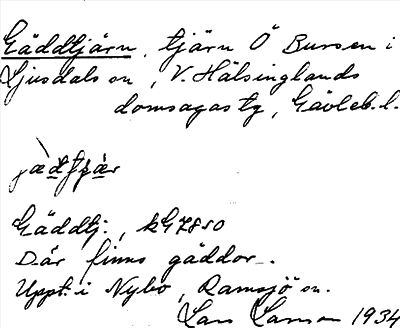 Gäddtjärn, tjärn Ö Bursen i
Ljusdals sn, V. Hälsinglands
domsagas tg, Gävleb. l.
Gäddtj., kG7810
Där finns gäddor.
Uppt. i Nybo, Ramsjö sn.
Lars Larsson 1934